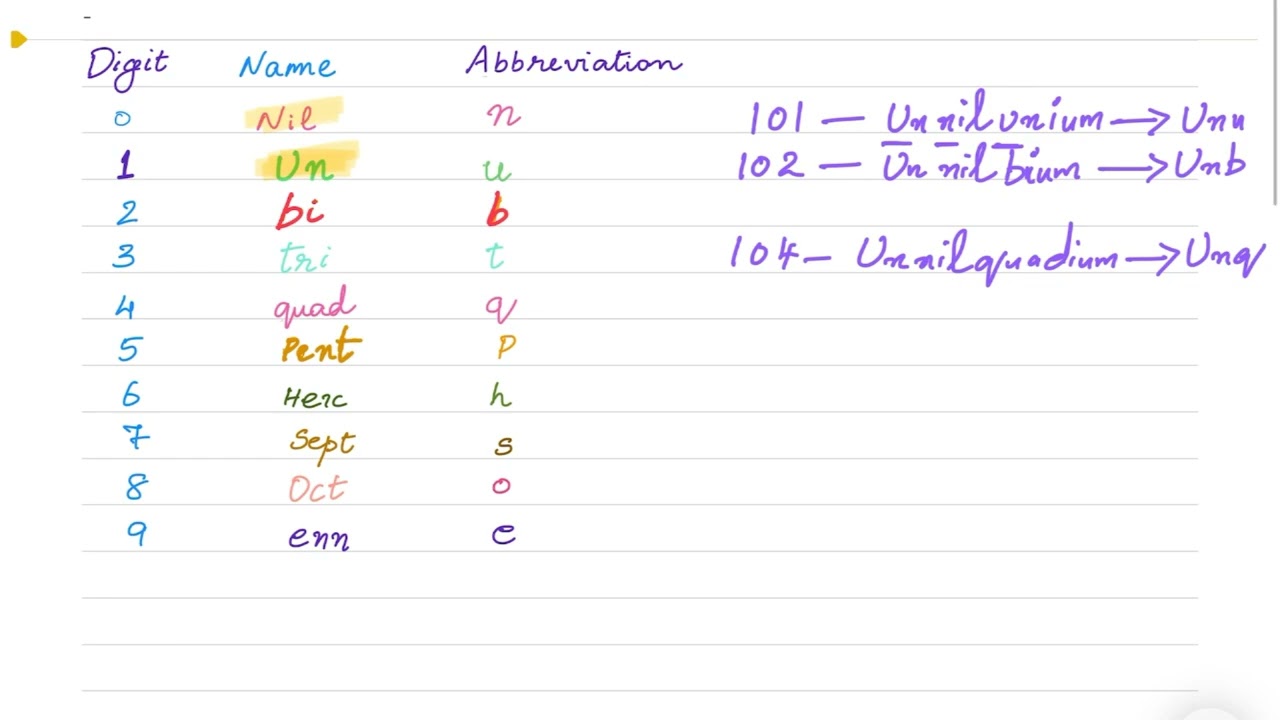 Digit Name Abbreviation
0 Nil n 101 — Unnilunium → Unu
1 Un u 102 — Unnilbium → Unb
2 bi b
3 tri t 104 — Unnilquadium → Unq
4 quad q
5 Pent P
6 Hexc h
7 Sept s
8 Oct o
9 enn e